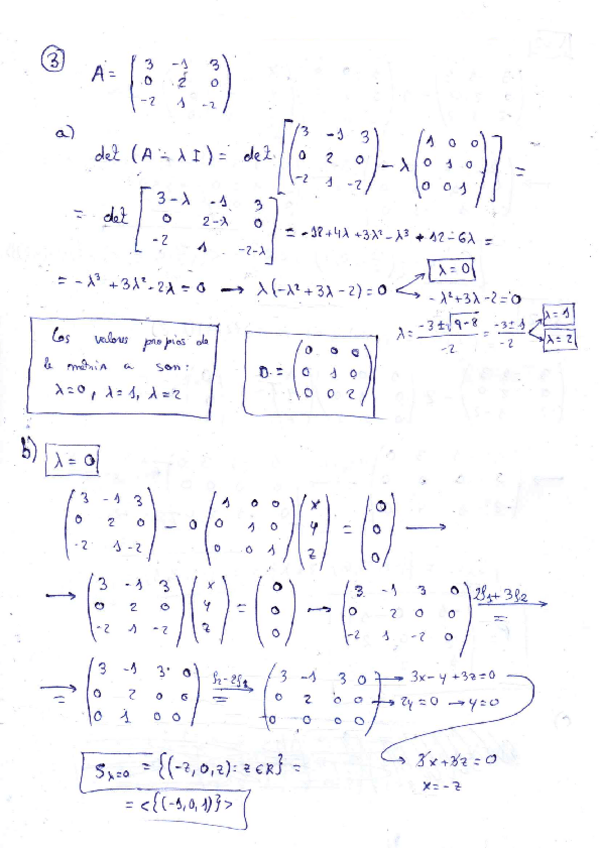 ③
A = ( 3 -1 3 ; 0 2 0 ; -2 1 -2 )
a) det (A - λI) = det [ ( 3 -1 3 ; 0 2 0 ; -2 1 -2 ) - λ ( 1 0 0 ; 0 1 0 ; 0 0 1 ) ] =
= det [ 3-λ -1 3 ; 0 2-λ 0 ; -2 1 -2-λ ] = -12+4λ+3λ²-λ³+12-6λ =
= -λ³+3λ²-2λ=0 → λ(-λ²+3λ-2)=0
λ=0
-λ²+3λ-2=0
λ = (-3±√(9-8))/-2 = (-3±1)/-2
λ=1
λ=2
Los valores propios de
la matriz a son:
λ=0, λ=1, λ=2
D = ( 0 0 0 ; 0 1 0 ; 0 0 2 )
b) λ=0
( 3 -1 3 ; 0 2 0 ; -2 1 -2 ) - 0 ( 1 0 0 ; 0 1 0 ; 0 0 1 ) ( x ; y ; z ) = ( 0 ; 0 ; 0 ) →
→ ( 3 -1 3 ; 0 2 0 ; -2 1 -2 ) ( x ; y ; z ) = ( 0 ; 0 ; 0 ) → ( 3 -1 3 0 ; 0 2 0 0 ; -2 1 -2 0 ) 2f₁+3f₂ =
→ = ( 3 -1 3 0 ; 0 2 0 0 ; 0 1 0 0 ) = ( 3 -1 3 0 ; 0 2 0 0 ; 0 0 0 0 )
→ 3x-y+3z=0
→ 2y=0 → y=0
→ 3x+3z=0
x=-z
S λ=0 = {(-z,0,z): z∈R} =
= <{(-1,0,1)}>